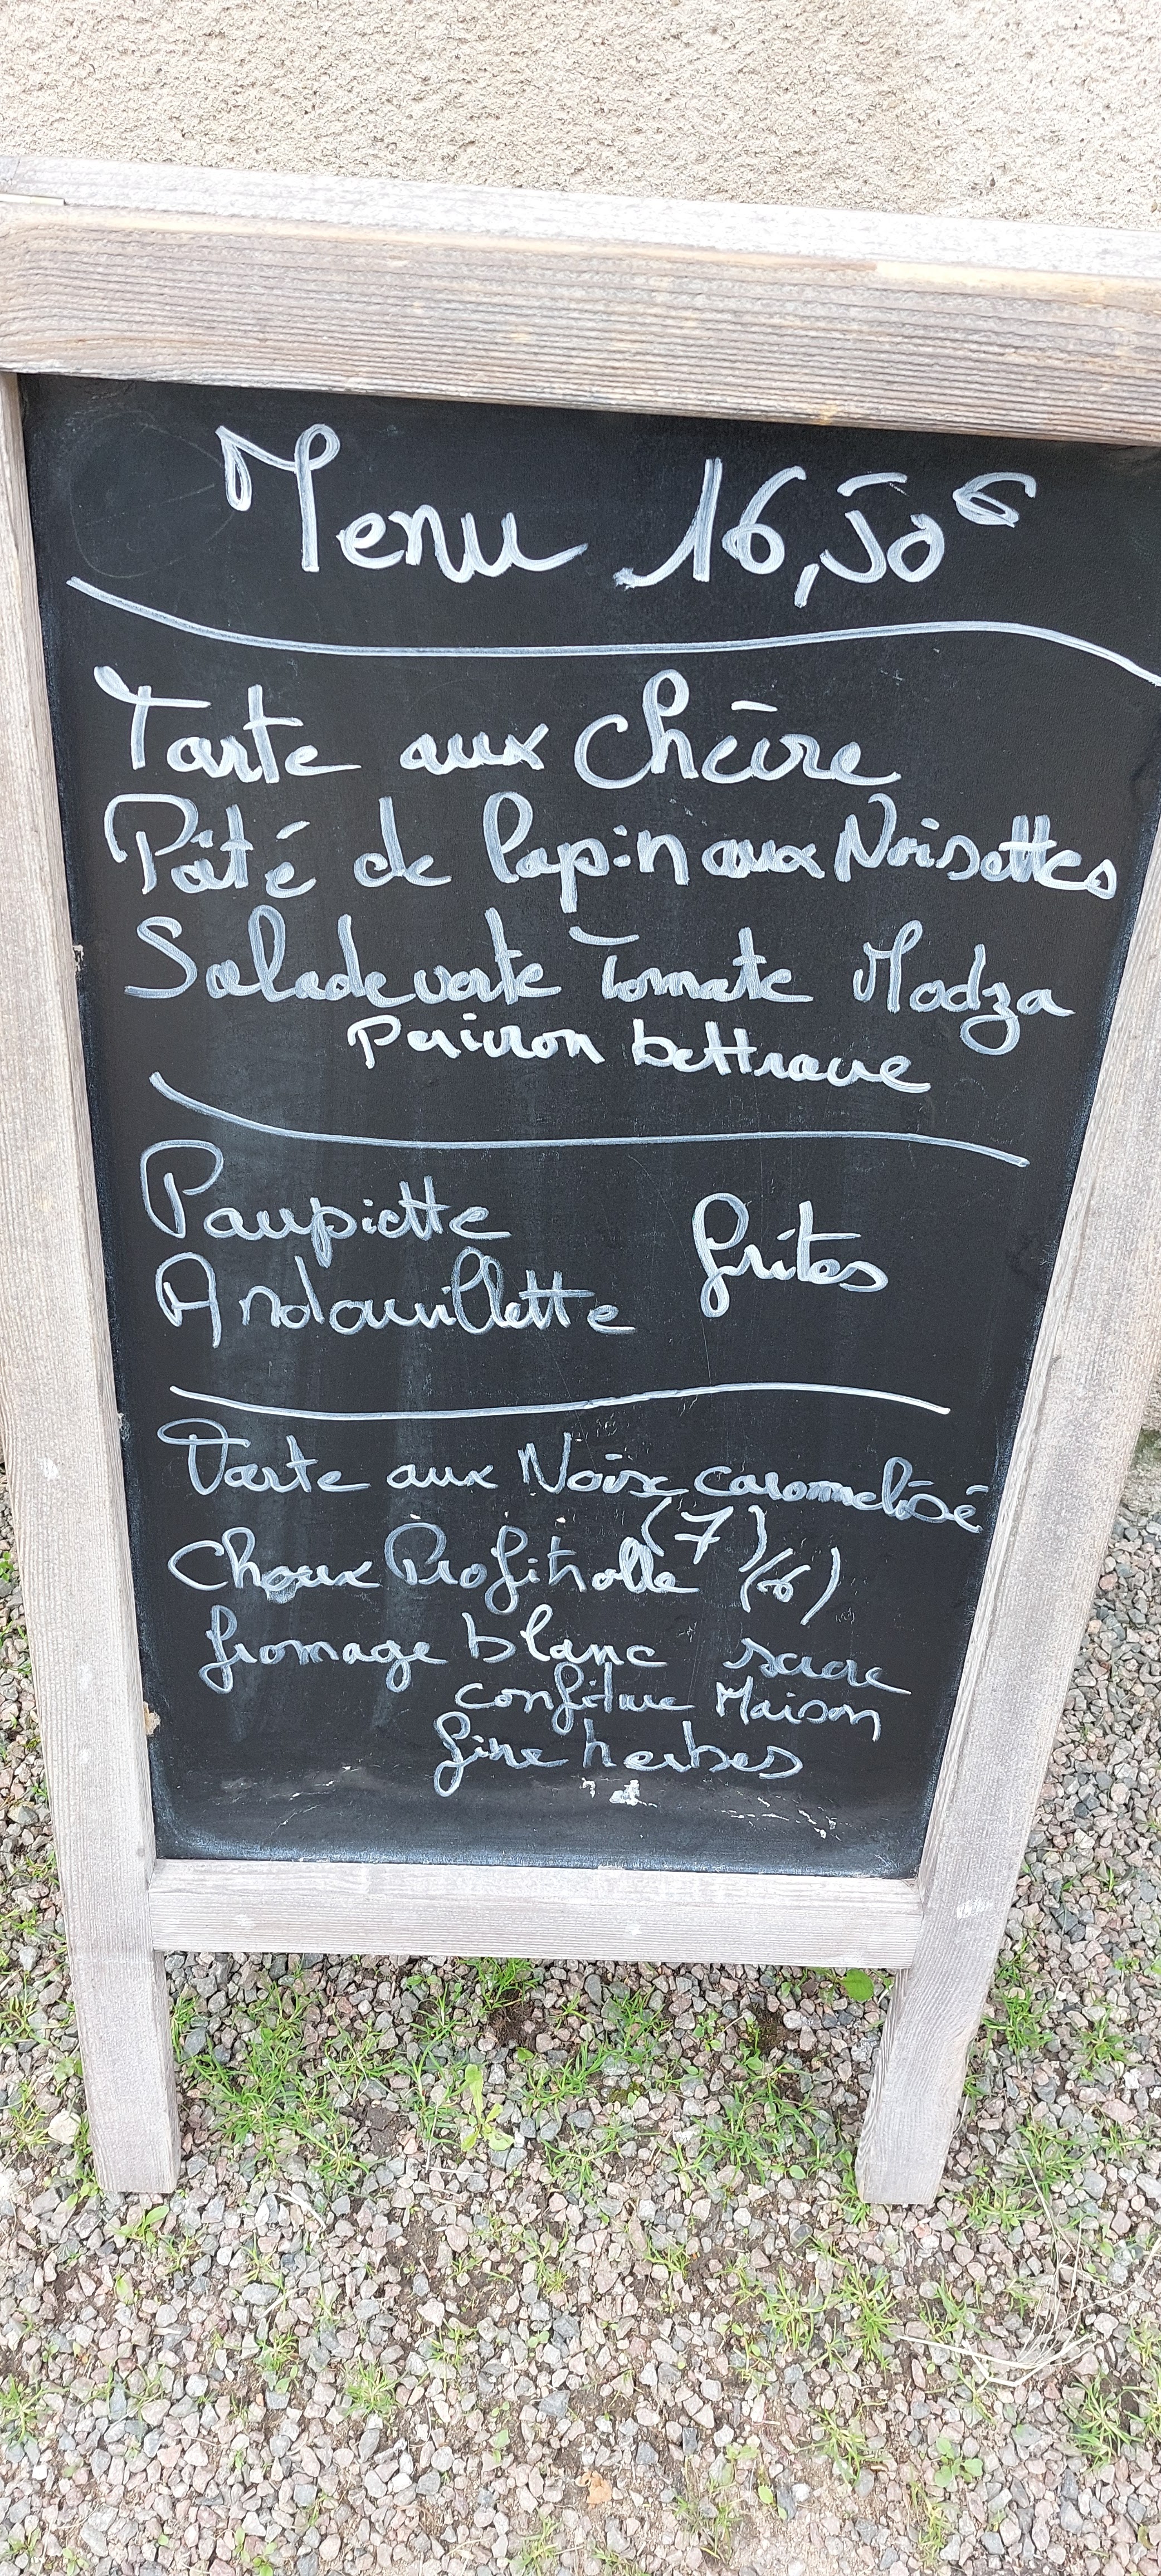 Menu 16,50€
Tarte aux Chèvre
Pâté de Lapin aux Noisettes
Salade verte Tomate Modza
Poivron bettrave
Paupiette
frites
Andouillette
Tarte aux Noix caramelisé
(7)
Choux Profitrolle (6)
fromage blanc sucre
confiture Maison
fine herbes